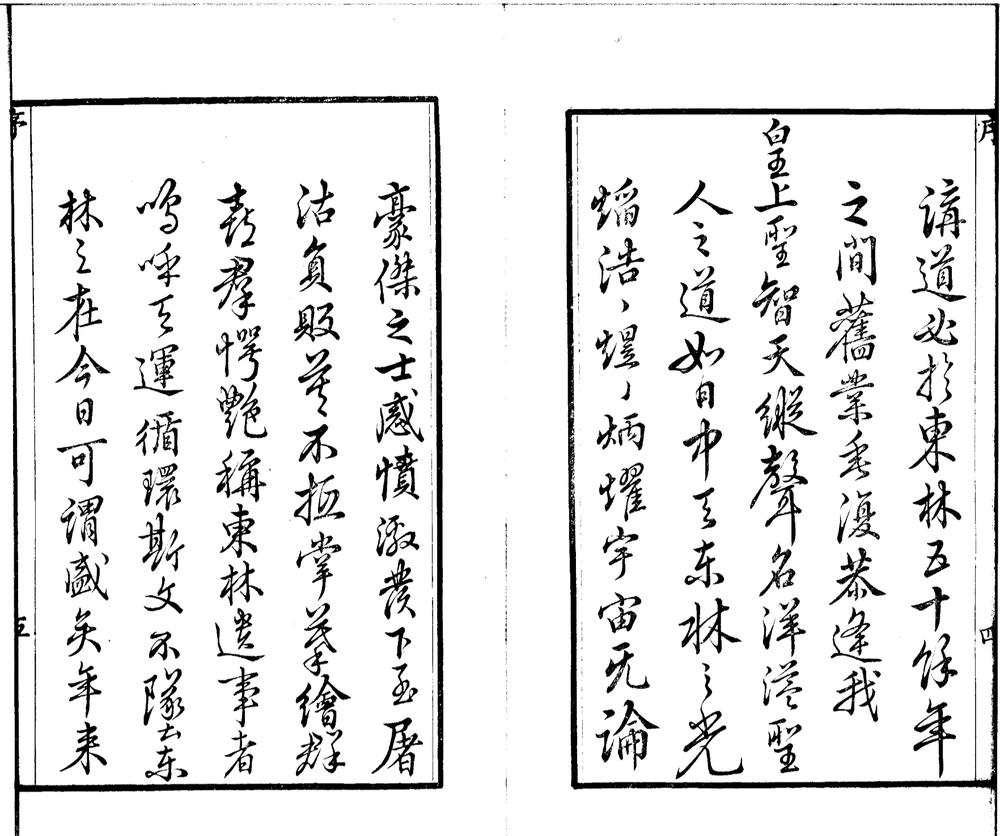 序
四
講道必於東林五十餘年
之間舊業重復恭逢我
皇上聖智天縱聲名洋溢聖
人之道如日中天東林之光
熖浩〻熀〻炳燿宇宙无論
豪傑之士感憤激發下至屠
沽負販莫不抵掌摹繪群
喜羣愕艷稱東林遺事者
嗚呼天運循環斯文不墜東
林之在今日可謂盛矣年来
序
五